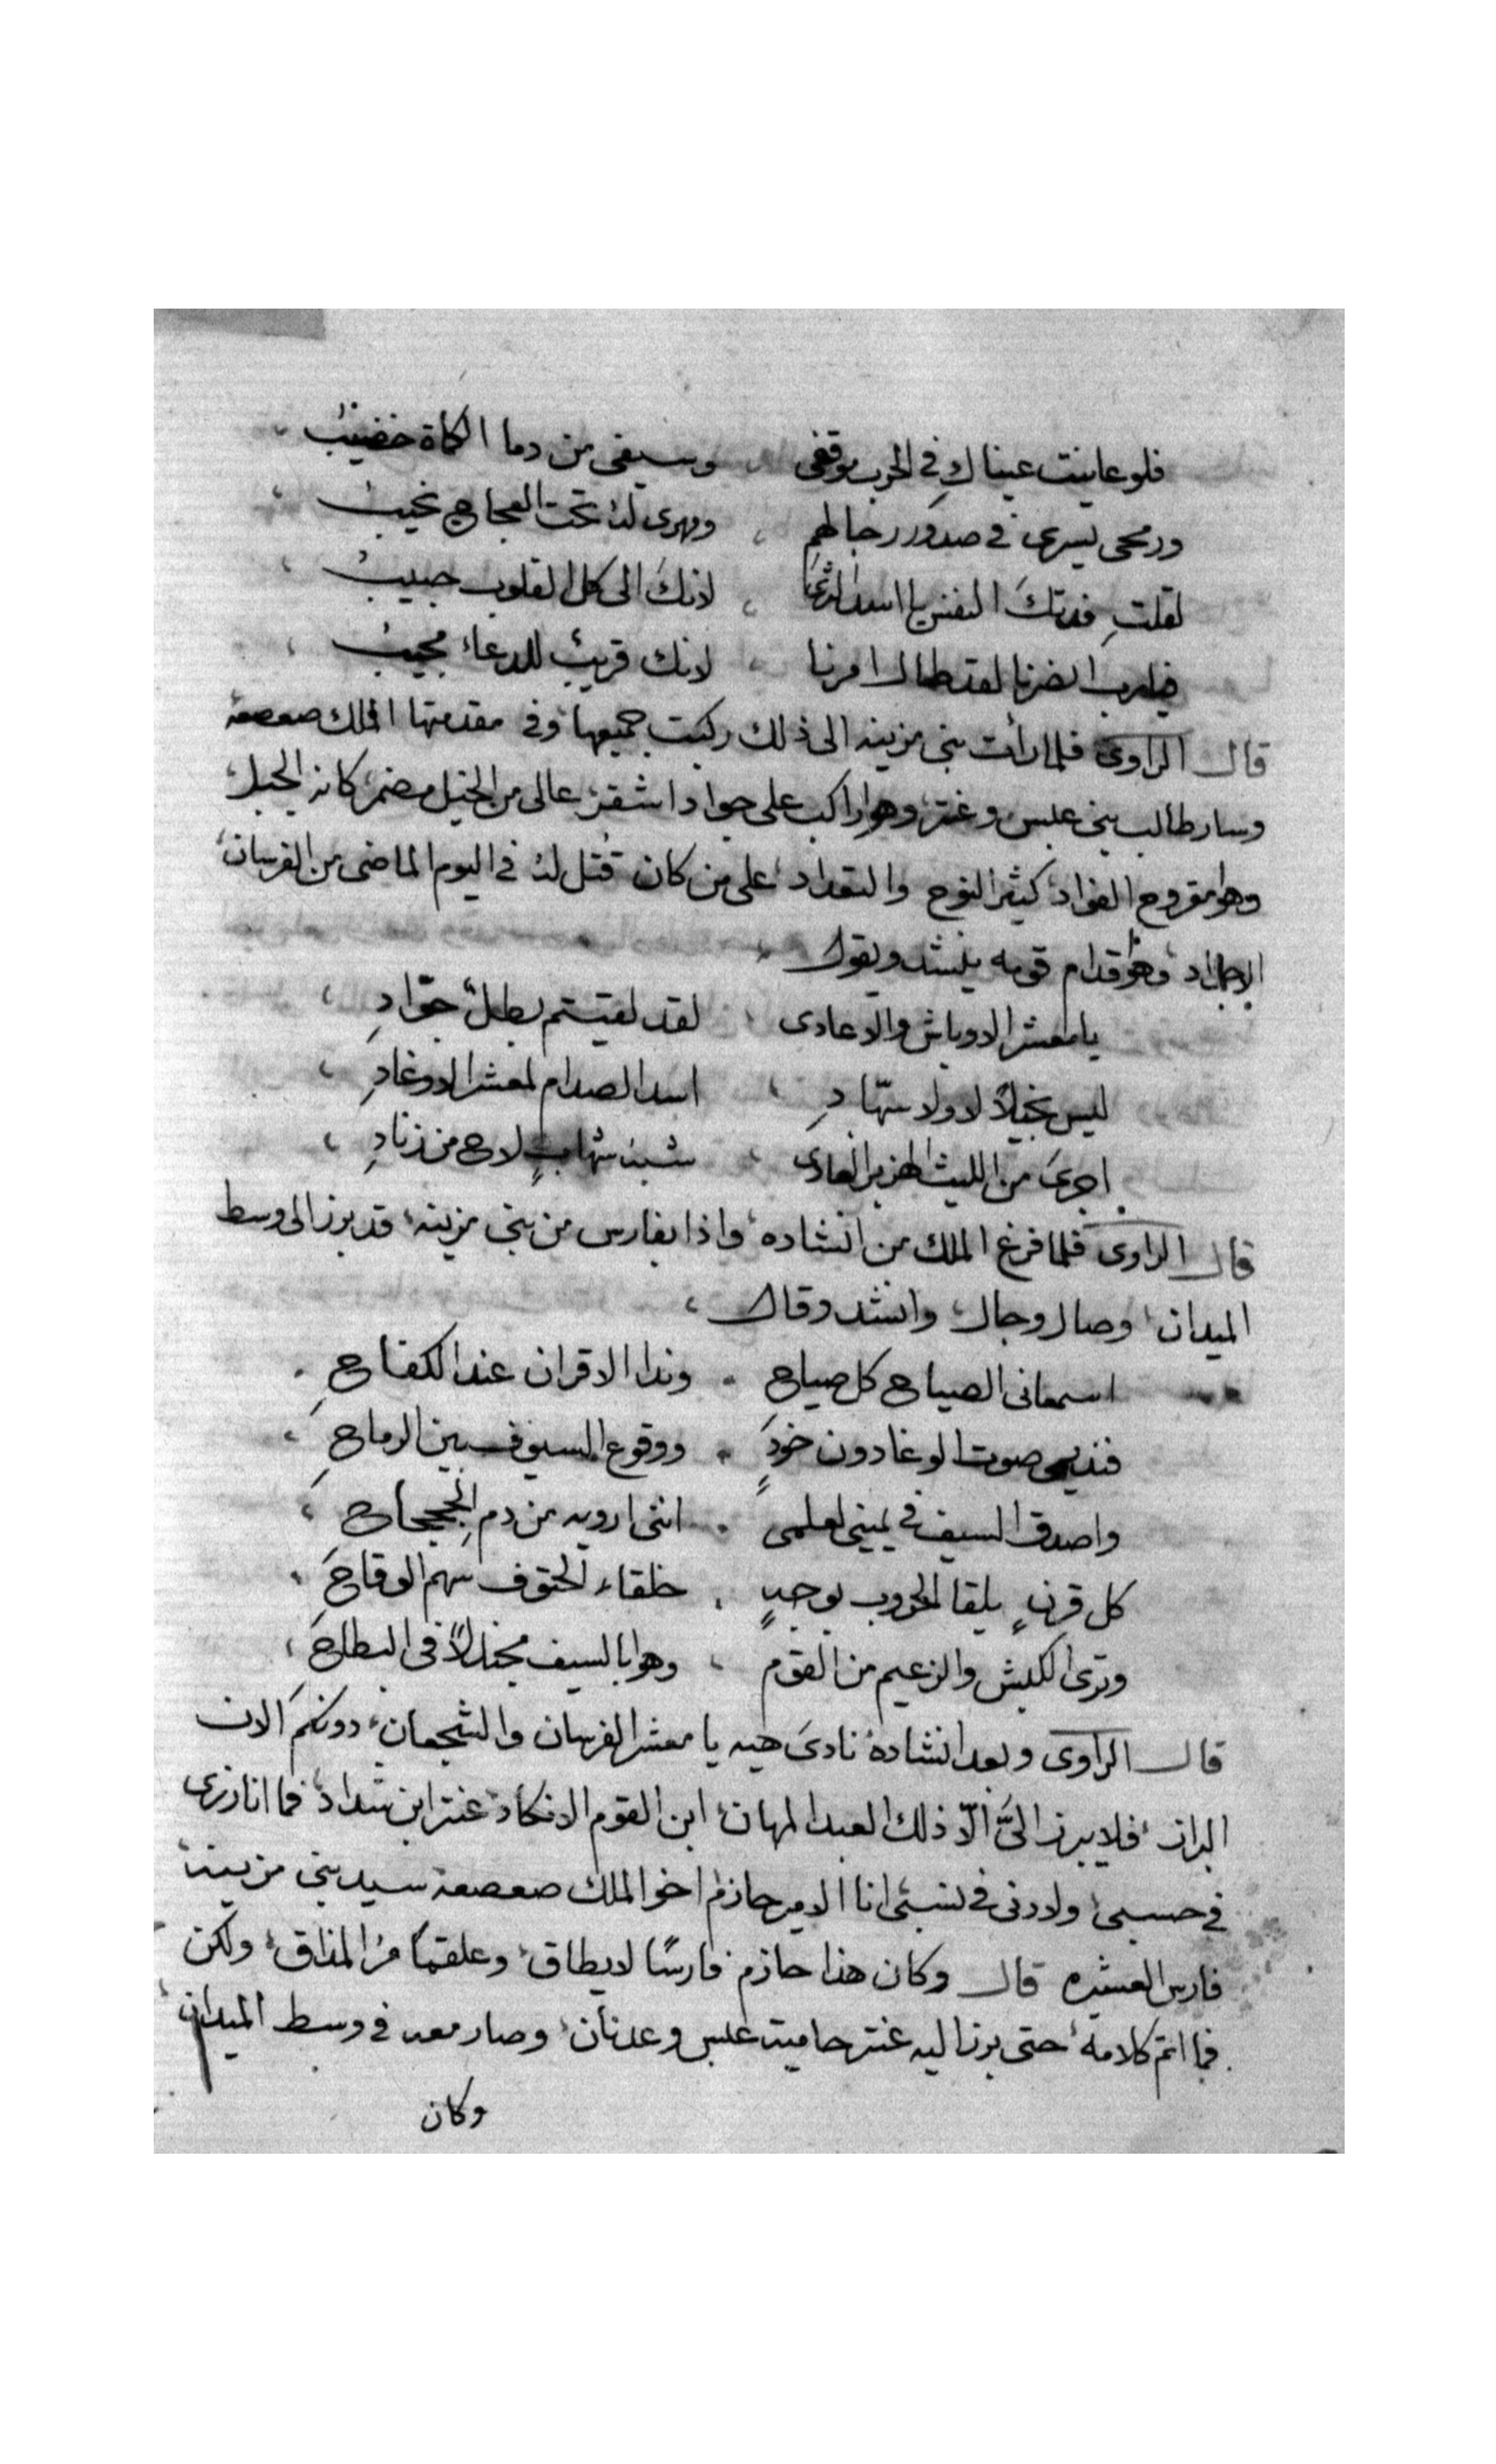 فلو عاينت عيناكِ في الحرب موقفي وسيفي من دما الكماة خضيبُ
ورمحي يسرى في صدور رجالهم ومهرى لهُ تحت العجاج نحيبُ
لقلتِ فدتكَ النفس يا اسد الشرَى لانكَ الى كل القلوب حبيبُ
فيارب انصرنا لقد طال امرنا لانك قريبٌ للدعاء مجيبُ
قال الراوى فلما رأت بنى مزينه الى ذلك ركبت جميعها وفى مقدمتها الملك صعصعه
وسار طالب بنى عبس وعنتر وهو راكب على جواد اشقر عالى من الخيل مضمر كانه الجبل
وهو مقروح الفواد كثير النوح والتعداد على من كان قُتل لهُ في اليوم الماضى من الفرسان
الاجواد وهو قدام قومه ينشد ويقول
يا معشر الاوباش والاعادى لقد لقيتم بطلٌ جوّادِ
ليس بخيلاً لا ولا سهّادِ اسد الصدام لمعشر الاوغادِ
اجرى من الليث الهزبر العادى شبه شهابٍ لاح من زنادِ
قال الراوى فلما فرغ الملك من انشاده واذا بفارس من بنى مزينه قد برز الى وسط
الميدان وصال وجال وانشد وقال
اسمعانى الصياح كل صياح وندا الاقران عند الكفاحِ
فنديمى صوت الوغا دون خودٍ ووقوع السيوف بين الرماحِ
واصدق السيف في يمينى لعلمى اننى ارويه من دم الجحجاحِ
كل قرنٍ يلقا الحروب بوجهٍ خلقاء الحتوف سهم الوقاحَ
وترى الكبش والزعيم من القوم وهو بالسيف مجندلاً فى البطاحَ
قال الراوى وبعد انشادهُ نادىَ هيه يا معشر الفرسان والشجعان دونكم الان
البراز فلا يبرز الىَّ الّا ذلك العبد المهان ابن القوم الانكاد عنتر ابن شداد فما انا زرى
في حسبى ولا دنى في نسبى انا الامير حازم اخو الملك صعصعه سيد بنى مزينه
فارس العشيره قال وكان هذا حازم فارسًا لا يطاق وعلقمًا مُر المذاق ولكن
فما اتم كلامهُ حتى برز اليه عنتر حاميت عبس وعدنان وصار معه في وسط الميدان
وكان